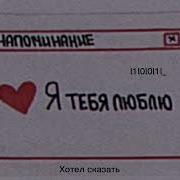 НАПОМИНАНИЕ
|1|0|0|1|_
Я ТЕБЯ ЛЮБЛЮ
Хотел сказать